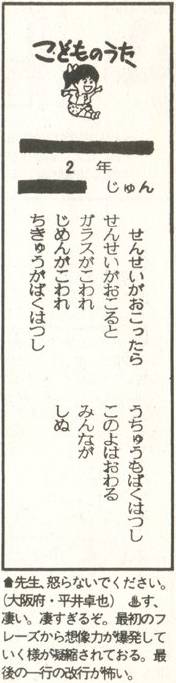 こどものうた
2年
じゅん
せんせいがおこったら
せんせいがおこると
ガラスがこわれ
じめんがこわれ
ちきゅうがばくはつし
うちゅうもばくはつし
このよはおわる
みんなが
しぬ
▲先生、怒らないでください。
(大阪府・平井卓也) ♨す、
凄い。凄すぎるぞ。最初のフ
レーズから想像力が爆発して
いく様が凝縮されておる。最
後の一行の改行が怖い。